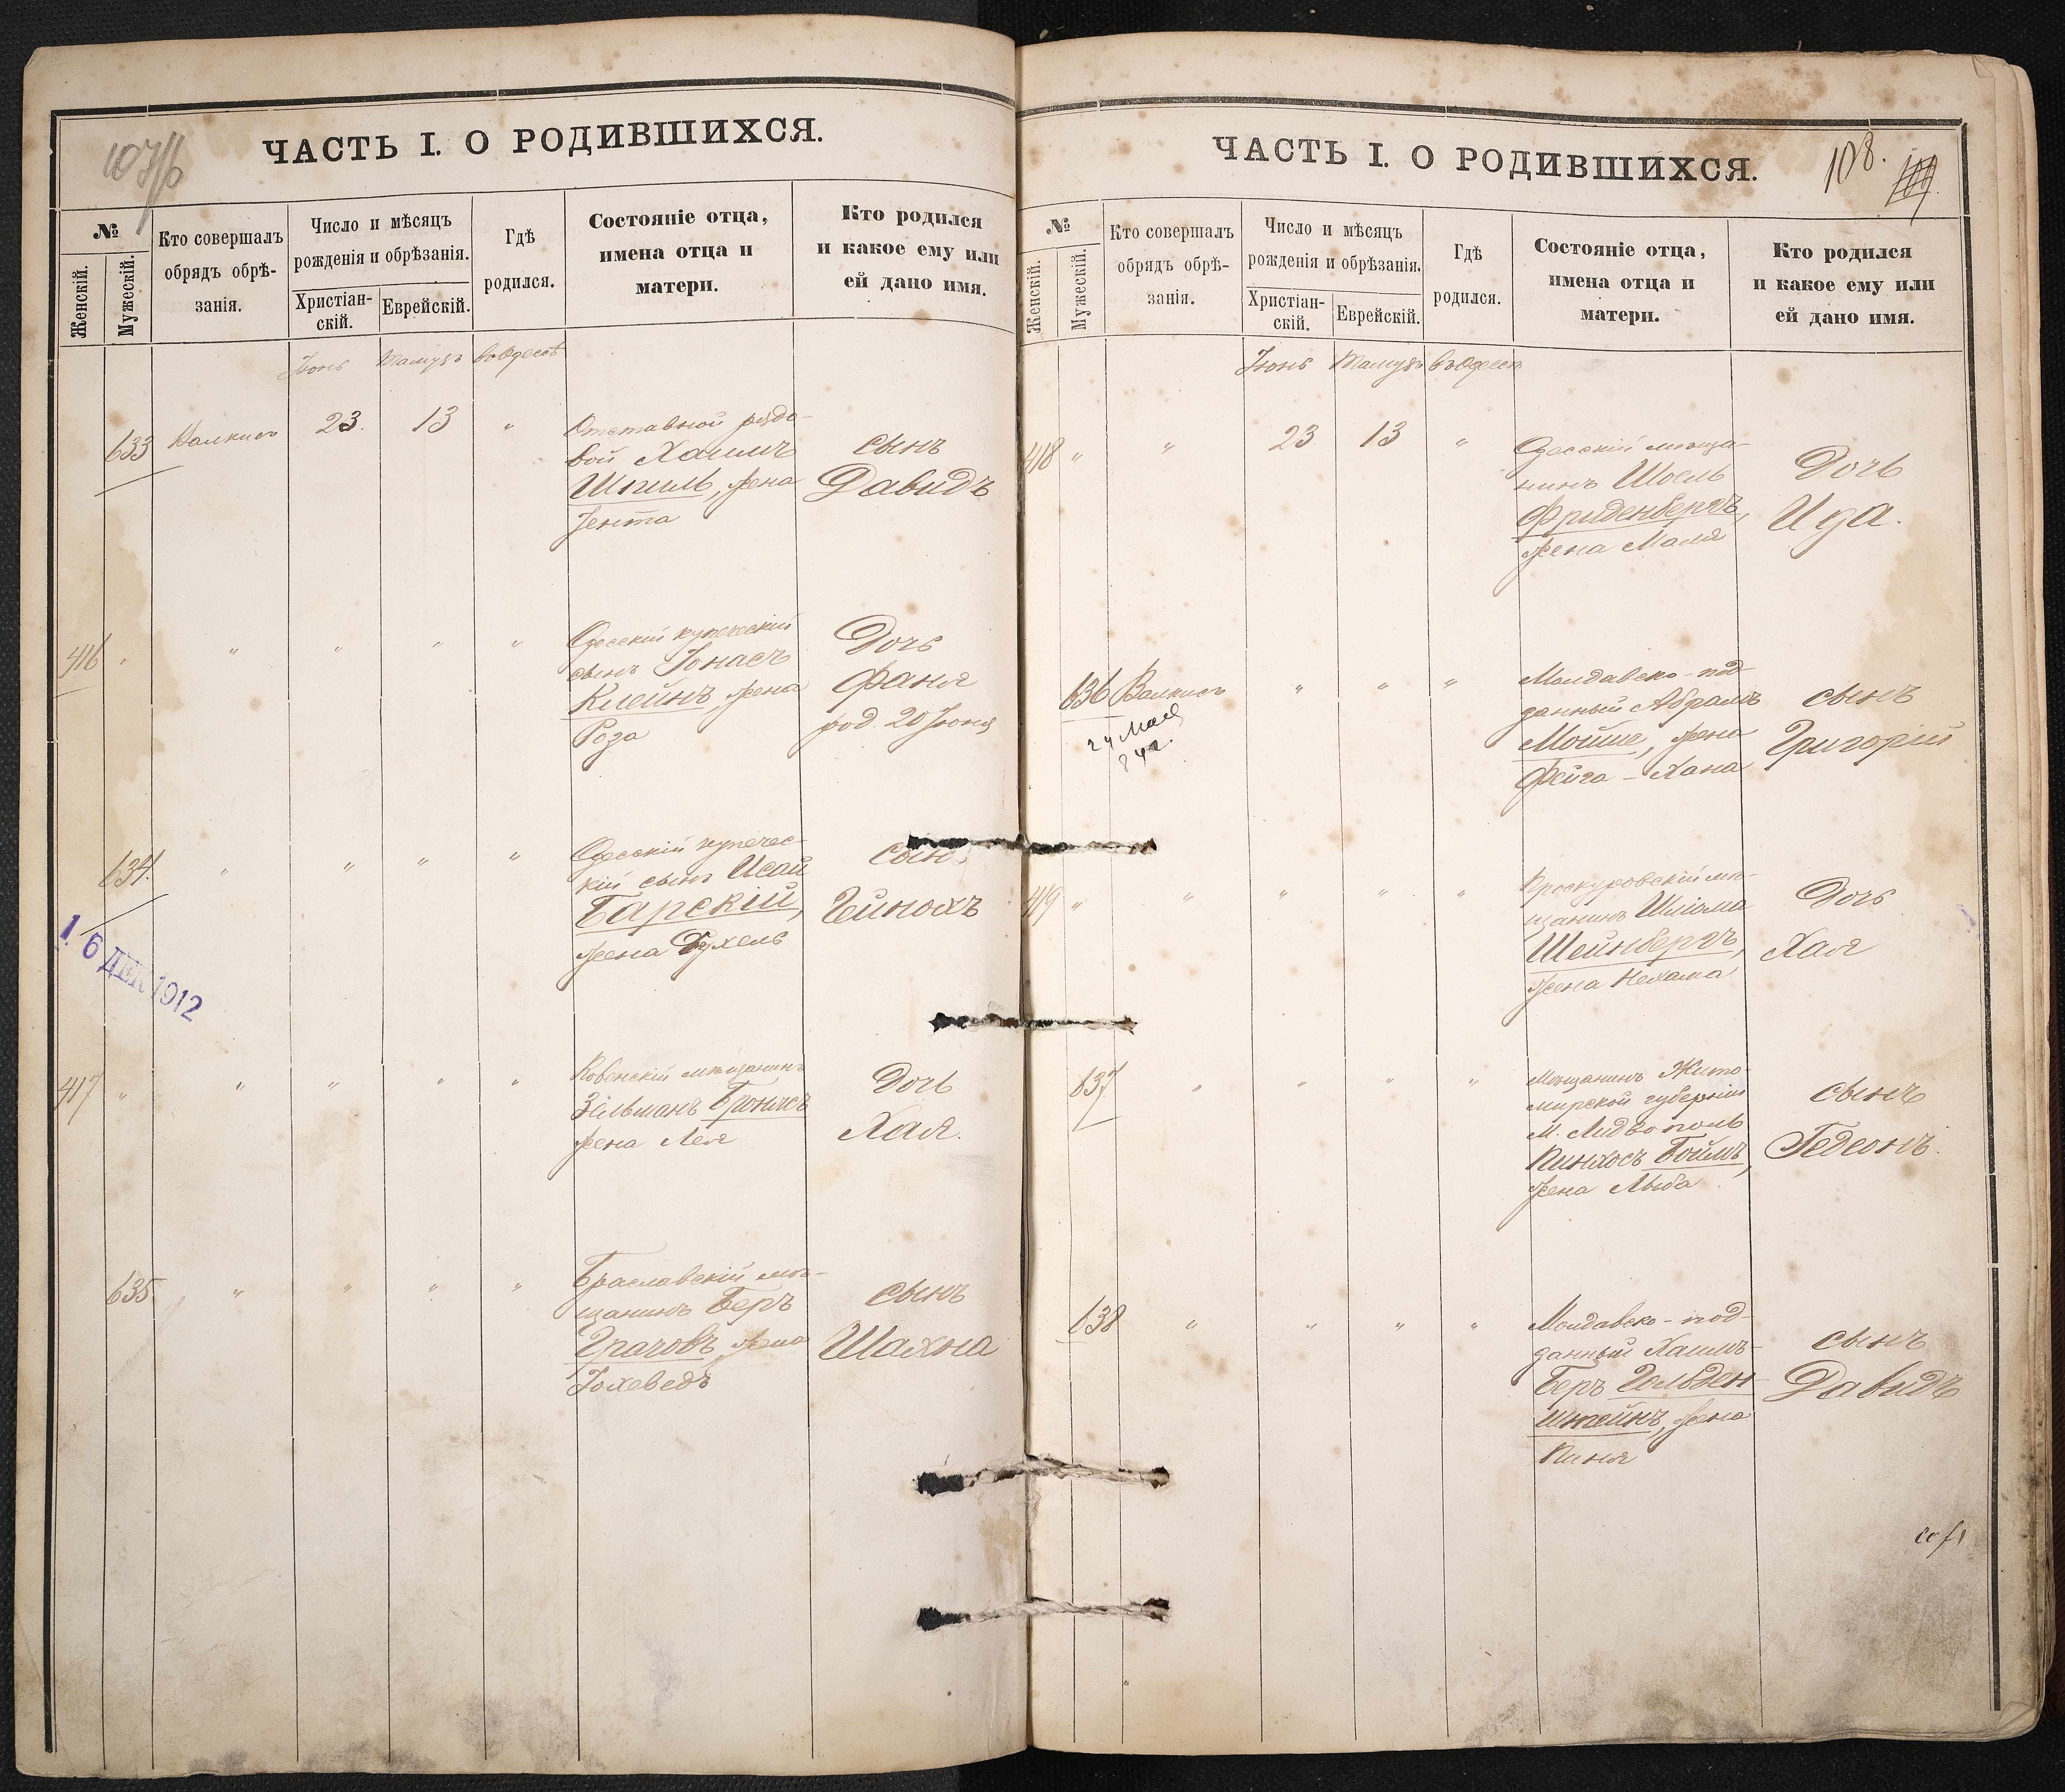 107/б
ЧАСТЬ I. О РОДИВШИХСЯ.
№
Женскій.
Мужескій.
Кто совершалъ
обрядъ обрѣ-
занія.
Число и мѣсяцъ
рожденія и обрѣзанія.
Христіан-
скій.
Еврейскій.
Гдѣ
родился.
Состояніе отца,
имена отца и
матери.
Кто родился
и какое ему или
ей дано имя.
Іюнь Тамузъ въ Одессѣ
633 23. 13 "
Отставной рядо-
вой Хаимъ
Шпиль, жена
Іента
сынъ
Давидъ
416 " " " " "
Одесскій купеческій
сынъ Іонасъ
Клейнъ, жена
Роза
Дочь
Фаня
род. 20 Іюня
634. " " " "
Одесскій купечес-
кій сынъ Исай
Барскій,
жена Рухель
сынъ
Гейнохъ
1. 6 ДЕК 1912
417 " " " " "
Ковенскій мѣщанинъ
Зельманъ
жена Лея
Дочь
Хая.
635 " " " "
Браславскій мѣ-
щанинъ Беръ
Грачовъ жена
Іохеведъ
сынъ
Шахна
ЧАСТЬ I. О РОДИВШИХСЯ.
108.
109.
№
Женскій.
Мужескій.
Кто совершалъ
обрядъ обрѣ-
занія.
Число и мѣсяцъ
рожденія и обрѣзанія.
Христіан-
скій.
Еврейскій.
Гдѣ
родился.
Состояніе отца,
имена отца и
матери.
Кто родился
и какое ему или
ей дано имя.
Іюнь Тамузъ въ Одессѣ
418 " " 23 13 "
Одесскій мѣща-
нинъ Шоель
Фриденбергъ,
жена Маля
Дочь
Ида.
636 " " "
24 Мая
Молдавско-под-
данный Абрамъ
Мойше, жена
Фейга-Хана
сынъ
Григорій
419 " " " " "
Проскуровскій мѣ-
щанинъ Шліома
Шейнбергъ,
жена Нехама
Дочь
Хая
637 " " " "
Мѣщанинъ Жито-
мирской губерніи
Пинхосъ Боймъ,
жена Лыба
сынъ
Гедеонъ.
638 " " " "
Молдавско-под-
данный Хаимъ-
Беръ Гольден-
штейнъ, жена
Пиня
сынъ
Давидъ